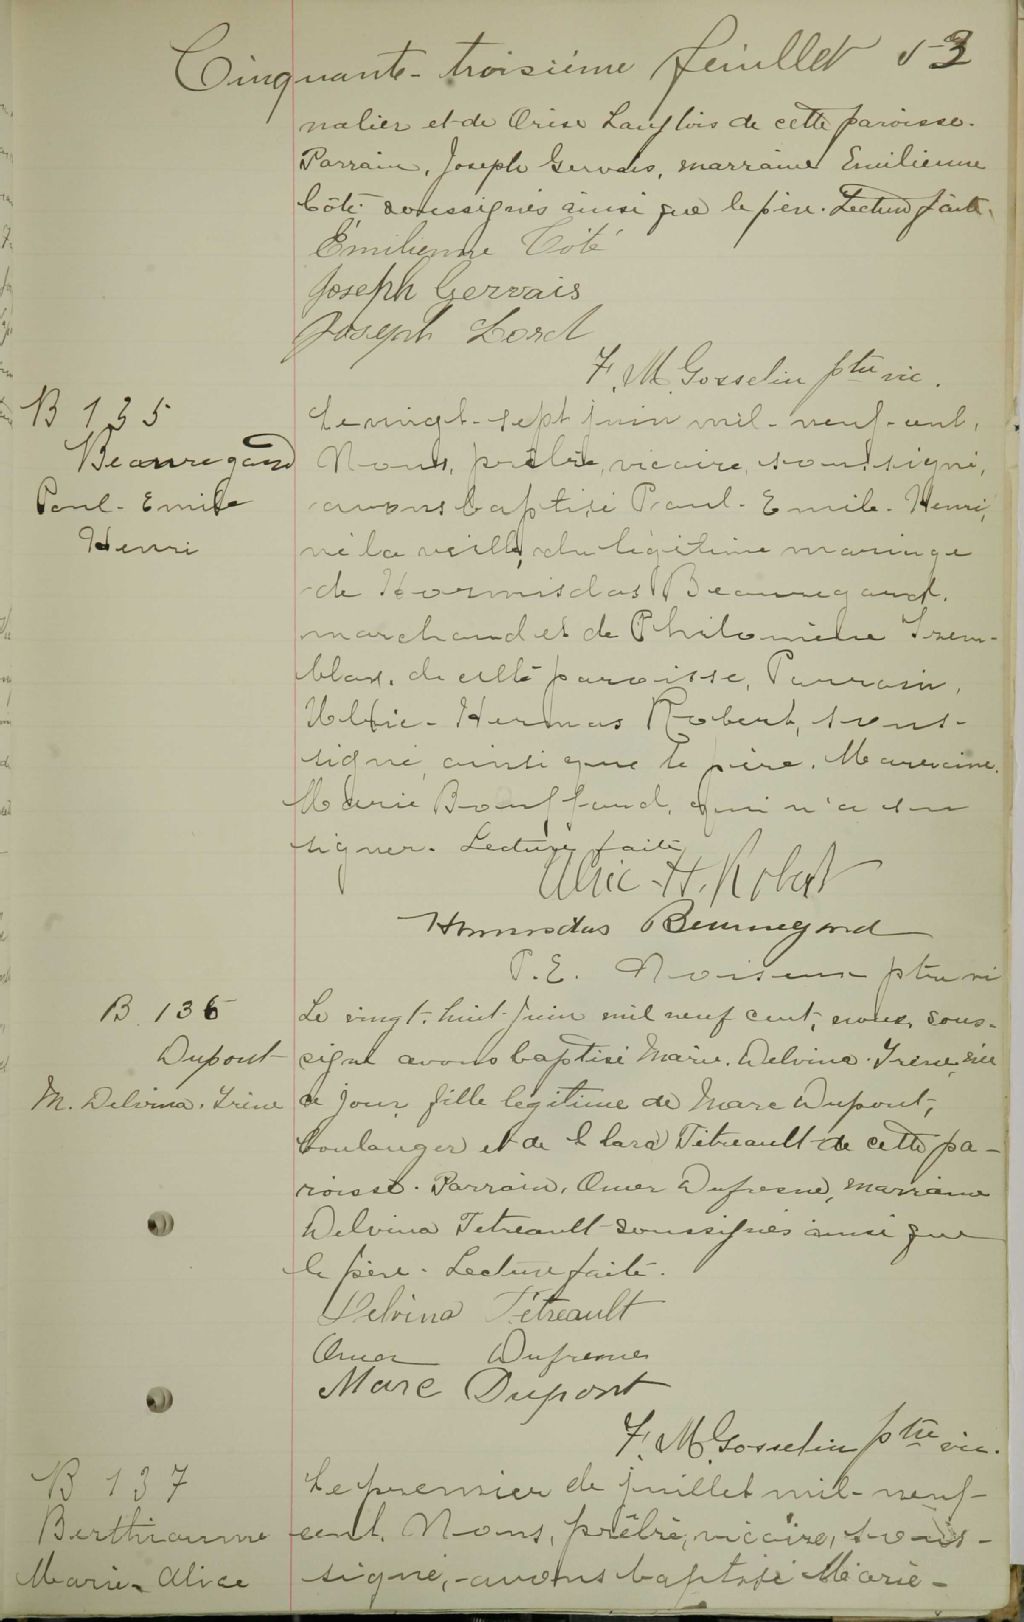 Cinquante-troisième feuillet 53
nalier et de Orise Langlois de cette paroisse.
Parrain, Joseph Gervais, marraine Emilienne
Côté soussignés ainsi que le père. Lecture faite.
Émilienne Côté
Joseph Gervais
Joseph Lord
F. M. Gosselin ptre vic.
B 135
Beauregard
Paul-Emile
Henri
Le vingt-sept juin mil-neuf-cent,
Nous, prêtre, vicaire, soussigné,
avons baptisé Paul-Emile-Henri,
né la veille, du légitime mariage
de Hormisdas Beauregard,
marchand et de Philomène Trem-
blay, de cette paroisse, Parrain,
Ulric-Hermas Robert, sous-
signé, ainsi que le père. Marraine
Marie Bouffard, qui n'a su
signer. Lecture faite
Ulric-H. Robert
Hormisdas Beauregard
P.E. Noiseux ptre vi
B. 136
Dupont
M. Delvina. Irène
Le vingt-huit juin mil neuf cent, nous, sous-
signé avons baptisé Marie. Delvina. Irène, née
ce jour, fille légitime de Marc Dupont,
boulanger et de Clara Tétreault de cette pa-
roisse. Parrain, Omer Dufresne, marraine
Delvina Tetreault soussignés ainsi que
le père. Lecture faite.
Delvina Tétreault
Omer Dufresne
Marc Dupont
F. M. Gosselin ptre vic.
B 137
Berthiaume
Marie-Alice
Le premier de juillet mil-neuf-
cent, Nous, prêtre, vicaire, sous-
signé, avons baptisé Marie-